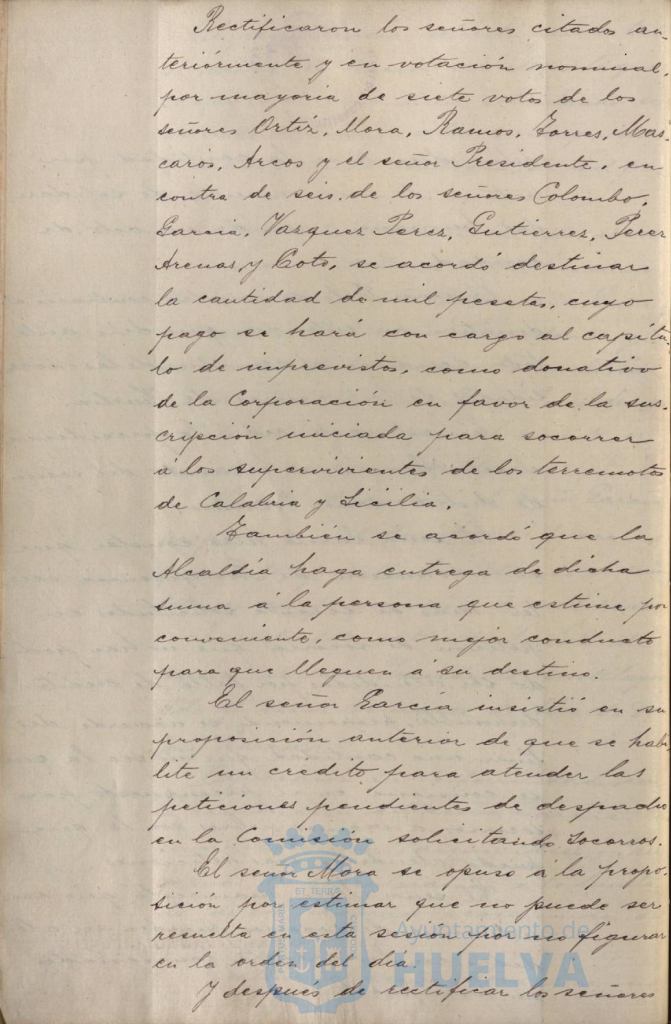 Rectificaron los señores citados an-
teriórmente y en votación nominal,
por mayoria de siete votos de los
señores Ortíz, Mora, Ramos, Torres, Mas-
carós, Arcos y el señor Presidente, en
contra de seis, de los señores Colombo,
Garcia, Vazquez Perez, Gutierrez, Perez
Arenas y Coto, se acordó destinar
la cantidad de mil pesetas, cuyo
pago se hará con cargo al capítu-
lo de imprevistos, como donativo
de la Corporación en favor de la sus-
cripción iniciada para socorrer
á los supervivientes de los terremotos
de Calabria y Sicilia.
También se acordó que la
Alcaldía haga entrega de dicha
suma á la persona que estime por
conveniente, como mejor conducto
para que lleguen á su destino.
El señor García insistió en su
proposición anterior de que se habi-
lite un crédito para atender las
peticiones pendientes de despacho
en la Comisión solicitando socorros.
El señor Mora se opuso á la propo-
sición por estimar que no puede ser
resuelta en esta sesión por no figurar
en la orden del día.
Y después de rectificar los señores
Ayuntamiento de
HUELVA